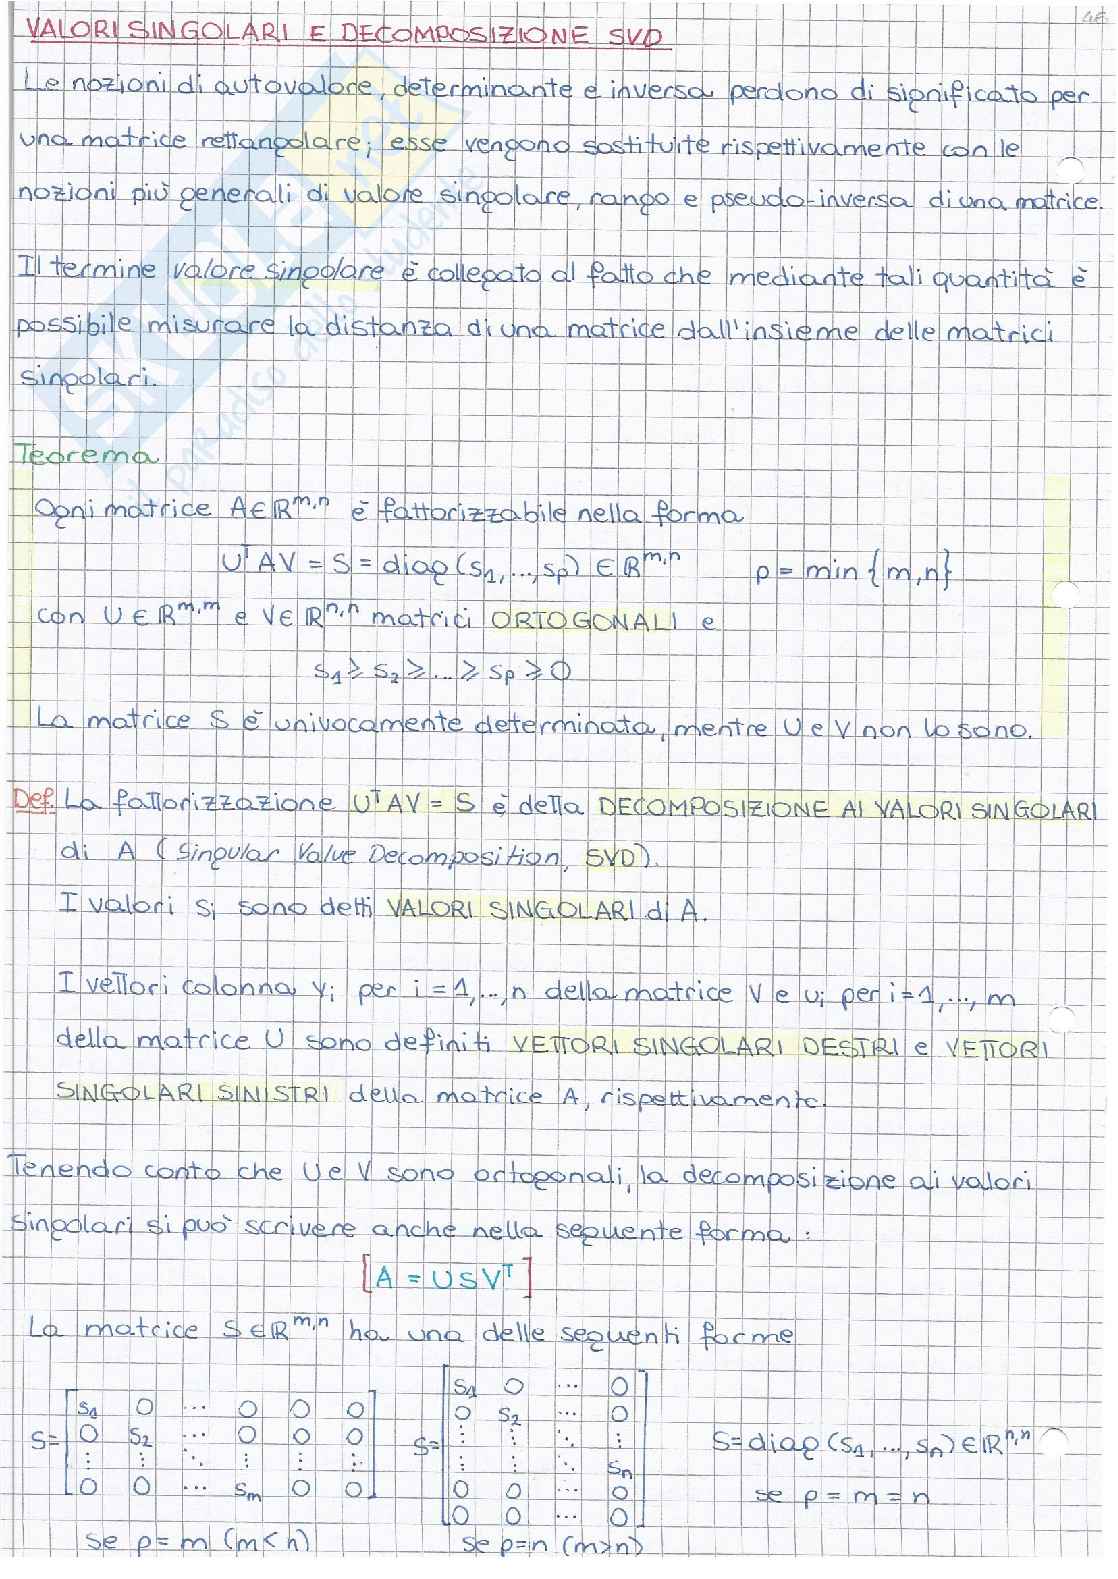 48
VALORI SINGOLARI E DECOMPOSIZIONE SVD
Le nozioni di autovalore, determinante e inversa perdono di significato per
una matrice rettangolare; esse vengono sostituite rispettivamente con le
nozioni più generali di valore singolare, rango e pseudo-inversa di una matrice.
Il termine valore singolare è collegato al fatto che mediante tali quantità è
possibile misurare la distanza di una matrice dall'insieme delle matrici
singolari.
SKUOLA.net
il paradiso dello studente
Teorema
Ogni matrice A∈ℝ^m,n è fattorizzabile nella forma
UᵀAV = S = diag(s₁,...,sp) ∈ℝ^m,n p = min{m,n}
con U∈ℝ^m,m e V∈ℝ^n,n matrici ORTOGONALI e
s₁ ≥ s₂ ≥ ... ≥ sp ≥ 0
La matrice S è univocamente determinata, mentre U e V non lo sono.
Def. La fattorizzazione UᵀAV = S è detta DECOMPOSIZIONE AI VALORI SINGOLARI
di A (Singular Value Decomposition, SVD).
I valori si sono detti VALORI SINGOLARI di A.
I vettori colonna vi per i = 1,..,n della matrice V e ui per i=1,..., m
della matrice U sono definiti VETTORI SINGOLARI DESTRI e VETTORI
SINGOLARI SINISTRI della matrice A, rispettivamente.
Tenendo conto che U e V sono ortogonali, la decomposizione ai valori
singolari si può scrivere anche nella seguente forma:
[A = USVᵀ]
La matrice S∈ℝ^m,n ha una delle seguenti forme
S= [s₁ 0 ... 0 0 0
0 s₂ ... 0 0 0
⋮ ⋮ ⋱ ⋮ ⋮ ⋮
0 0 ... sm 0 0]
se p = m (m < n)
S= [s₁ 0 ... 0
0 s₂ ... 0
⋮ ⋮ ⋱ ⋮
⋮ ⋮ ⋱ sn
0 0 ... 0
0 0 ... 0]
se p=n (m>n)
S=diag(s₁,...,sn)∈ℝ^n,n
se p = m = n